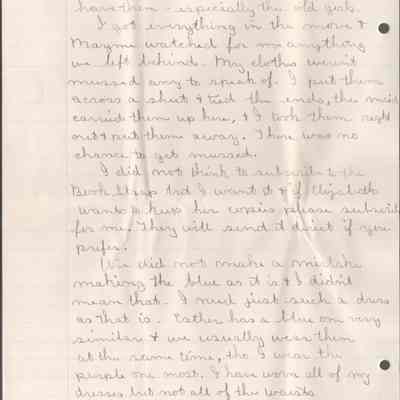 have them - especially the old
I got everything in the move &
Mayme watched for me anything
we left behind. My clothes weren't
mussed any to speak of. I put them
across a sheet & tied the ends, the maid
carried them up here, & I took them right
out & put them away. There was no
chance to get mussed.
I did not think to subscribe to the
Book Strap but I want it & if Elizabeth
wants to keep her copies please subscribe
for me. They will send it direct if you
prefer.
We did not make a mistake
making the blue as it is & I didn't
mean that. I need just such a dress
as that is. Esther has a blue one very
similar & we usually wear them
at the same time, tho I wear the
purple one most. I have worn all of my
dresses, but not all of the waists.